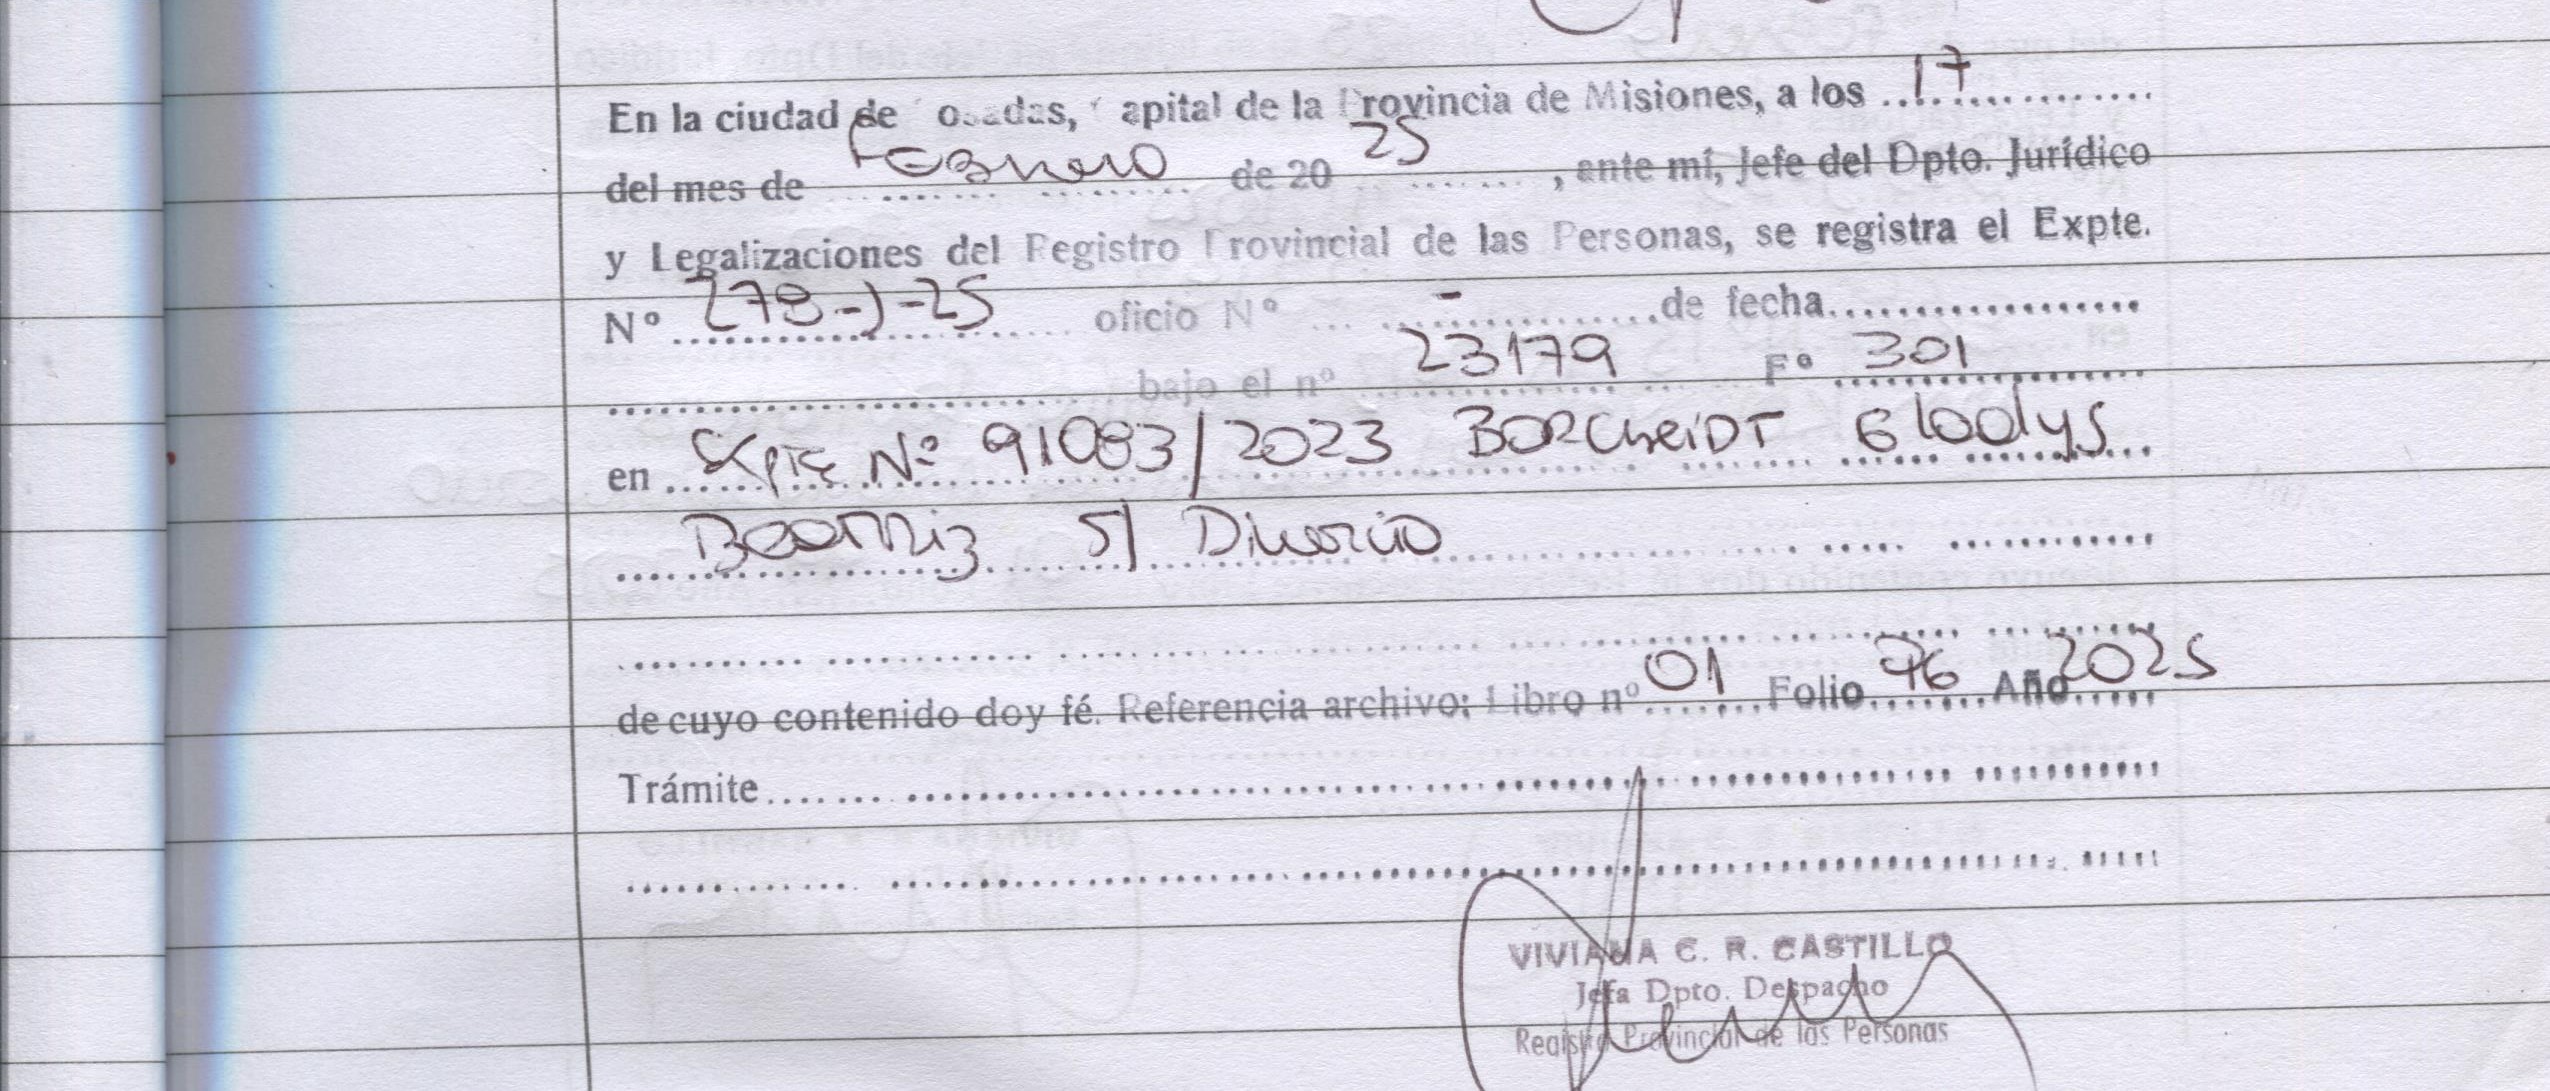 En la ciudad de Posadas, Capital de la Provincia de Misiones, a los 17
del mes de Febrero de 20 25, ante mí, Jefe del Dpto. Jurídico
y Legalizaciones del Registro Provincial de las Personas, se registra el Expte.
Nº 278-J-25 oficio Nº - de fecha
bajo el nº 23179 Fº 301
en Expte Nº 91083/2023 BORCHEIDT Gladys
Beatriz s/ Divorcio
de cuyo contenido doy fé. Referencia archivo: Libro nº 01 Folio 76 Año 2025
Trámite
VIVIANA C. R. CASTILLO
Jefa Dpto. Despacho
Registro Provincial de las Personas